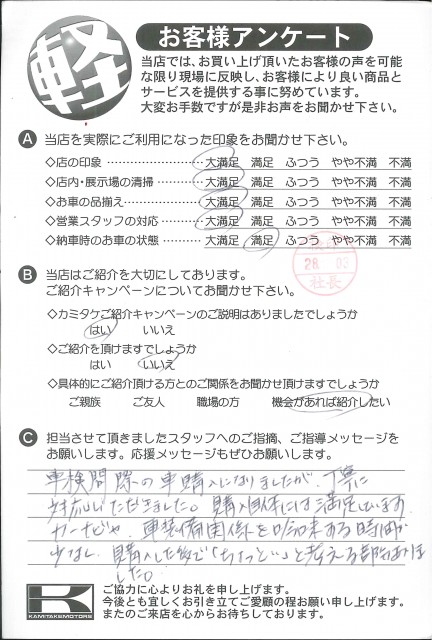 軽
お客様アンケート
当店では、お買い上げ頂いたお客様の声を可能
な限り現場に反映し、お客様により良い商品と
サービスを提供する事に努めています。
大変お手数ですが是非お声をお聞かせ下さい。
A 当店を実際にご利用になった印象をお聞かせ下さい。
◇店の印象 大満足 満足 ふつう やや不満 不満
◇店内・展示場の清掃 大満足 満足 ふつう やや不満 不満
◇お車の品揃え 大満足 満足 ふつう やや不満 不満
◇営業スタッフの対応 大満足 満足 ふつう やや不満 不満
◇納車時のお車の状態 大満足 満足 ふつう やや不満 不満
28 03
社長
B 当店はご紹介を大切にしてあります。
ご紹介キャンペーンについてお聞かせ下さい。
◇カミタケご紹介キャンペーンのご説明はありましたでしょうか
はい いいえ
◇ご紹介を頂けますでしょうか
はい いいえ
◇具体的にご紹介頂ける方とのご関係をお聞かせ頂けますでしょうか
ご親族 ご友人 職場の方 機会があれば紹介したい
C 担当させて頂きましたスタッフへのご指摘、ご指導メッセージを
お願いします。応援メッセージもぜひお願いします。
車検間際の車購入になりましたが、丁寧に
対応いただきました。購入自体には満足しています。
カーナビや、車装備関係を吟味する時間が
少なく、購入した後で「ちょっと…」と考える部分はありま
した。
K
KAMITAKEMOTORS
ご協力に心よりお礼を申し上げます。
今後とも宜しくお引き立てご愛顧の程お願い申し上げます。
またのご来店を心からお待ちしております。